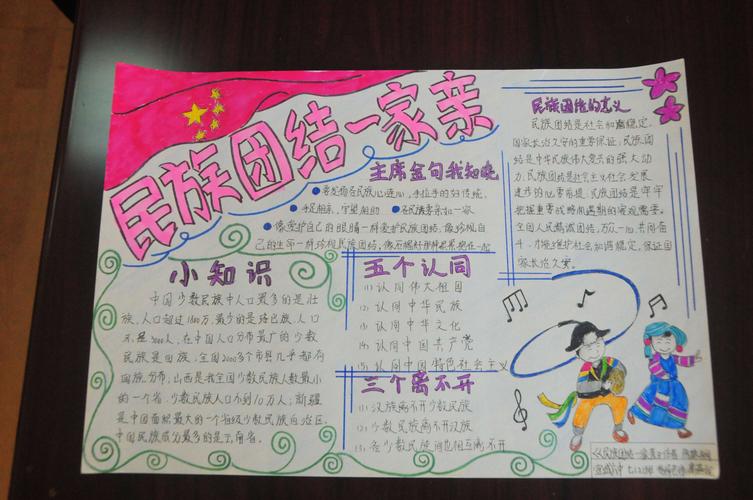 民族团结一家亲
主席金句我知晓
●要发扬各民族心连心,手拉手的好传统,
●手足相亲,守望相助 ●各民族要亲如一家
●像爱护自己的眼睛一样爱护民族团结,像珍视自
己的生命一样珍视民族团结,像石榴籽那样紧紧抱在一起
民族团结的意义
民族团结是社会和谐稳定,
国家长治久安的重要保证;民族团
结是中华民族伟大复兴的强大动
力,民族团结是社会主义社会发展
进步的必要前提,民族团结是牢牢
把握重要战略机遇期的客观需要。
全国人民精诚团结,万众一心,共同奋
斗,才能维护社会和谐稳定,保证国
家长治久安。
小知识
中国少数民族中人口最多的是壮
族,人口超过1600万,最少的是珞巴族,人口
不足3000人,在中国人口分布最广的少数
民族是回族,全国2000多个市县几乎都有
回族分布;山西是我全国少数民族人数最小
的一个省,少数民族人口不到10万人;新疆
是中国面积最大的一个省级少数民族自治区,
中国民族成分最多的是云南省。
五个认同
(1)认同伟大祖国
(2)认同中华民族
(3)认同中华文化
(4)认同中国共产党
(5)认同中国特色社会主义
三个离不开
(1)汉族离不开少数民族
(2)少数民族离不开汉族
(3)各少数民族间也相互离不开
《民族团结一家亲》